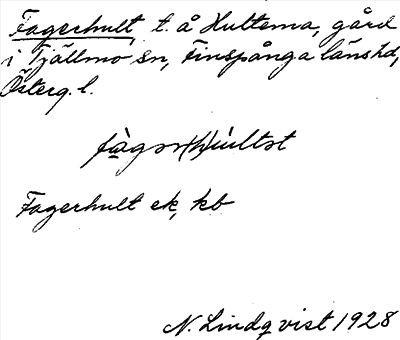 Fagerhult, t. å Hultema, gård
i Tjällmo sn, Finspånga länshd,
Österg. l.
fàgər(h)ùltət
Fagerhult ek, kb
N. Lindqvist 1928